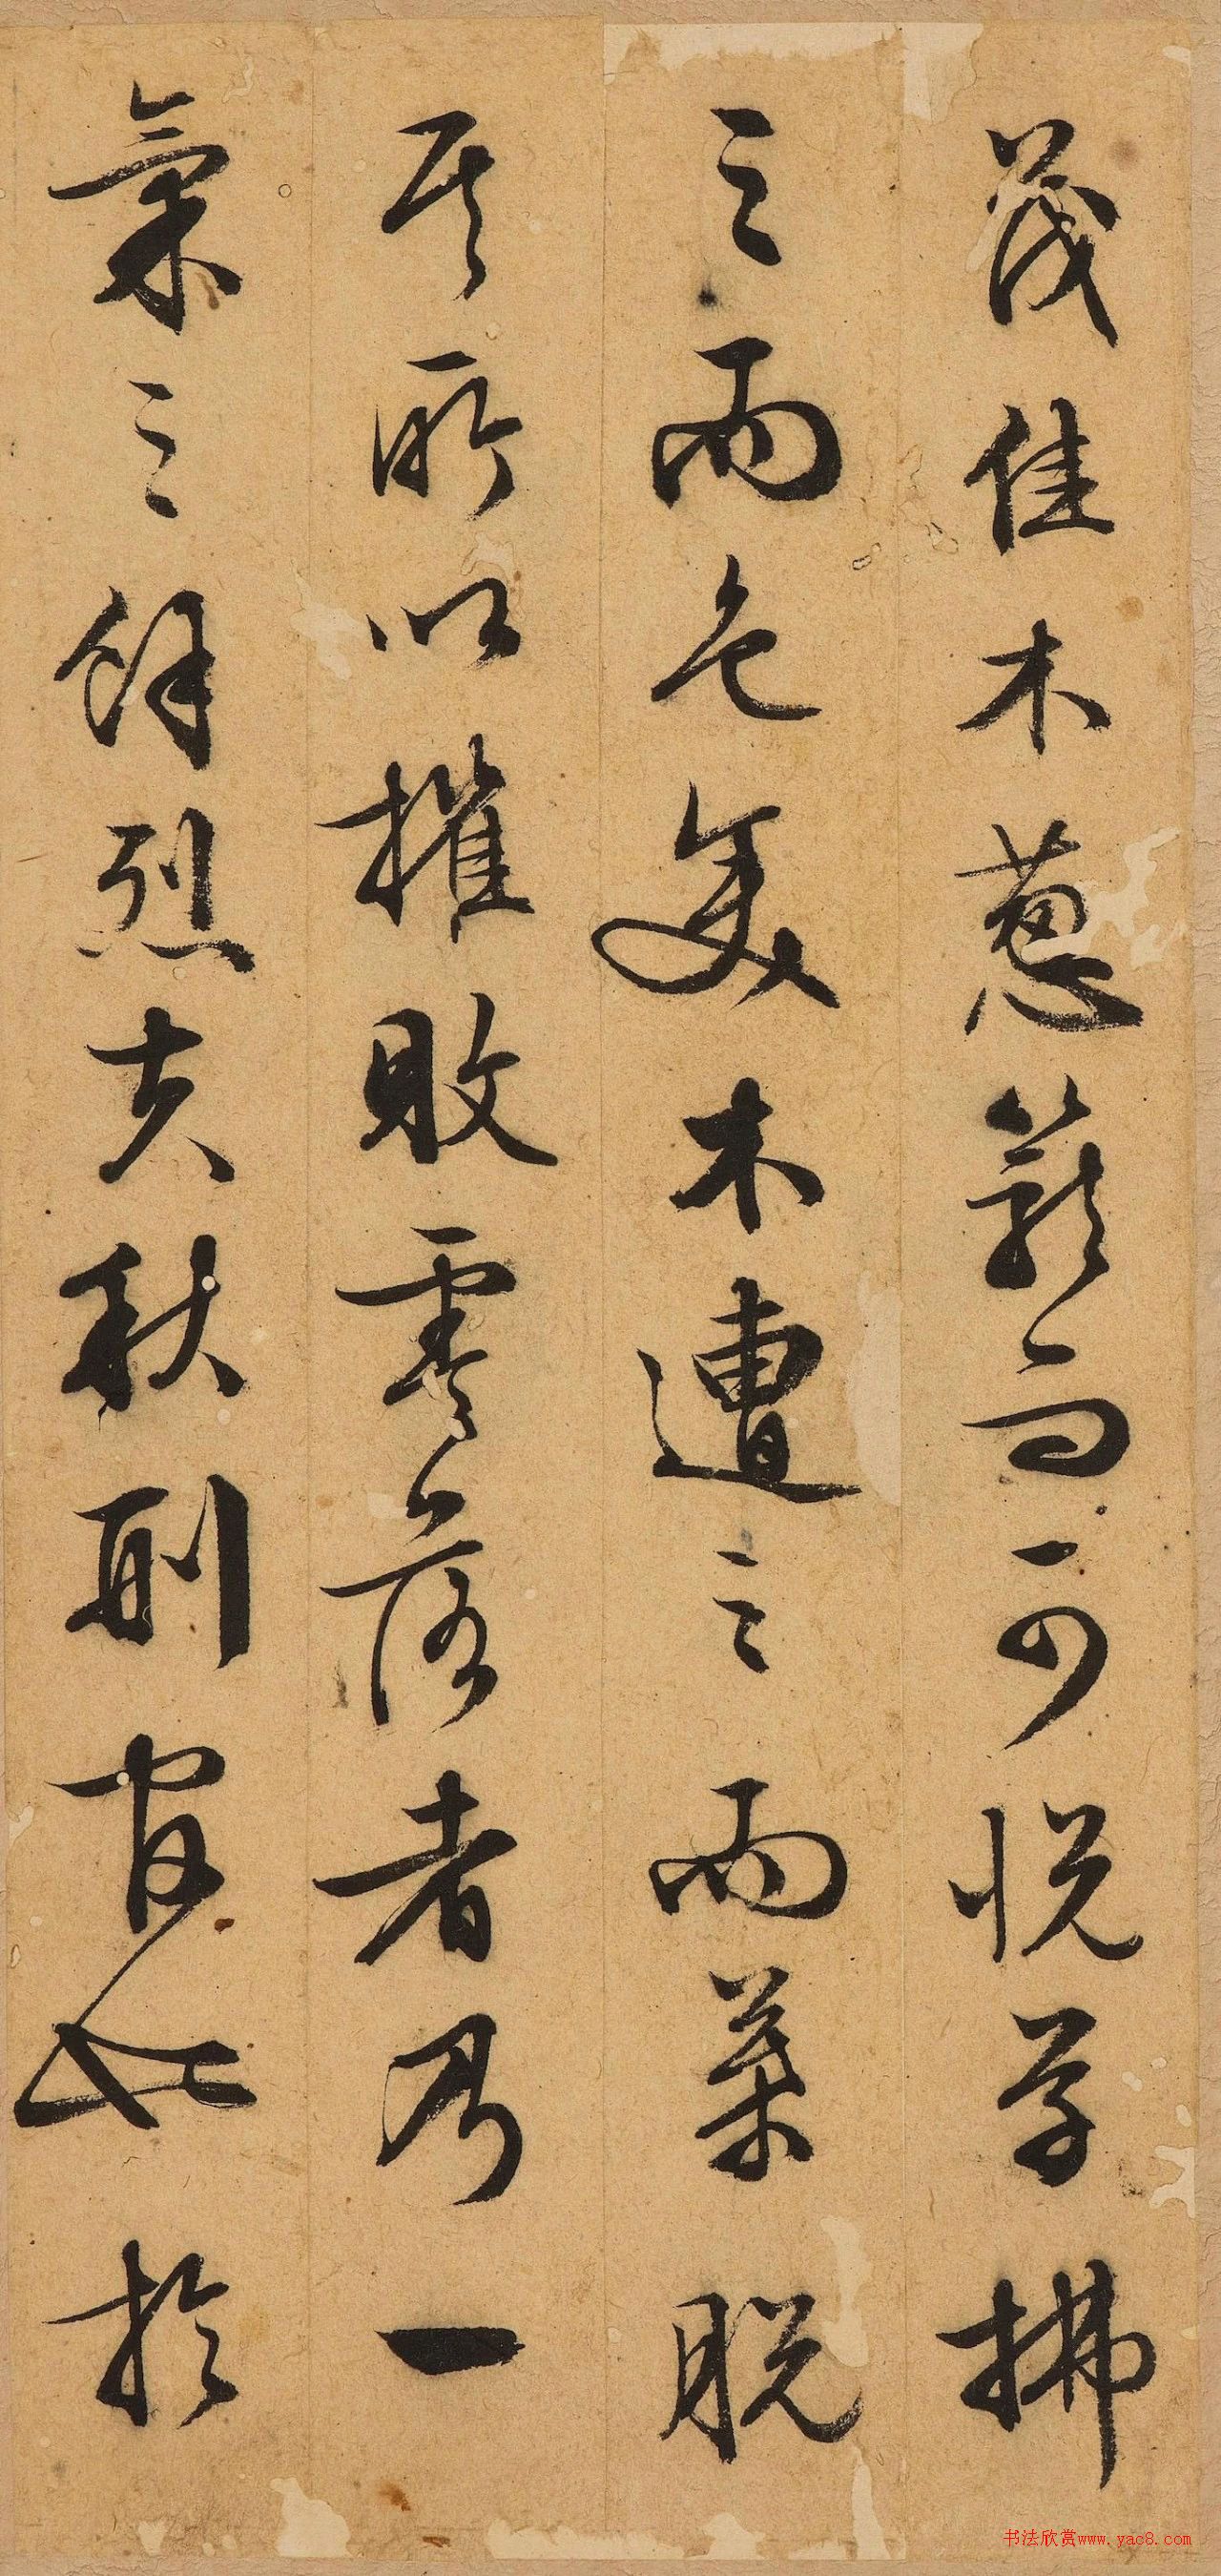 茂佳木葱蘢而可悦草拂
之而色變木遭之而葉脱
其所以摧敗零落者乃一
氣之餘烈夫秋刑官也於
书法欣赏www.yac8.com